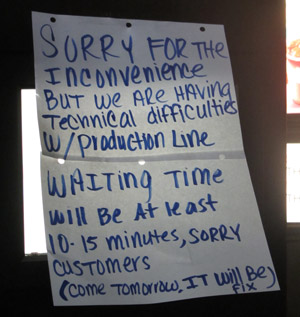 SORRY FOR THE
INCONVENIENCE
BUT WE ARE HAVING
Technical difficulties
W/Production Line
WAITING TIME
Will Be At least
10-15 minutes, SORRY
CUSTOMERS
(Come Tomorrow, IT Will Be
fix)